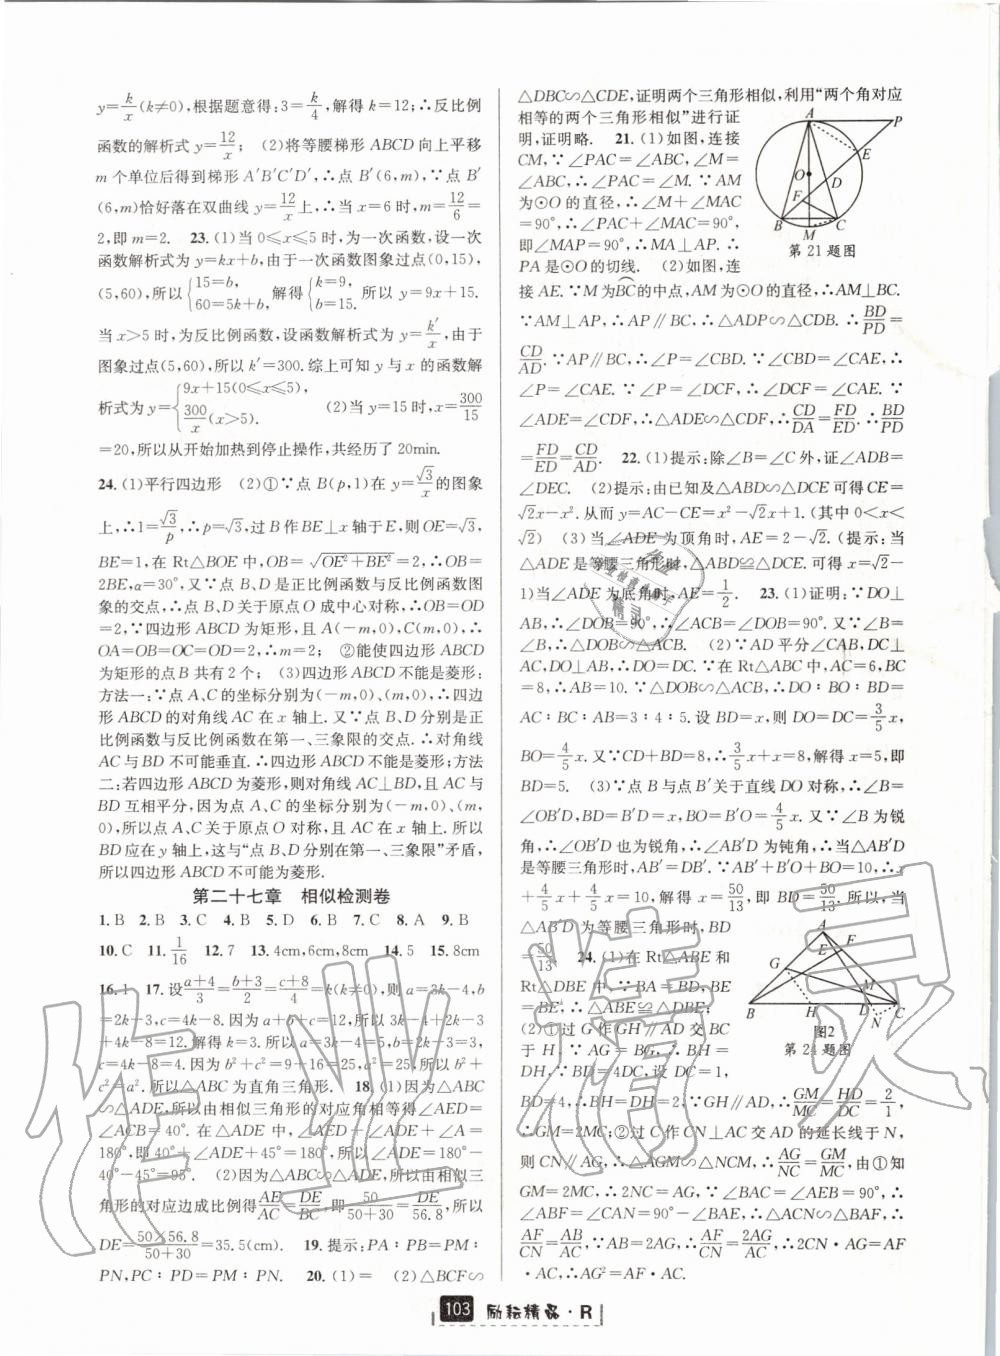 y=k/x(k≠0),根据题意得:3=k/4,解得k=12;∴反比例
函数的解析式y=12/x; (2)将等腰梯形ABCD向上平移
m个单位后得到梯形A′B′C′D′,∴点B′(6,m),∵点B′
(6,m)恰好落在双曲线y=12/x上,∴当x=6时,m=12/6
=2,即m=2. 23.(1)当0≤x≤5时,为一次函数,设一次
函数解析式为y=kx+b,由于一次函数图象过点(0,15),
(5,60),所以{15=b, 60=5k+b,解得{k=9, b=15. 所以y=9x+15.
当x>5时,为反比例函数,设函数解析式为y=k′/x,由于
图象过点(5,60),所以k′=300.综上可知y与x的函数解
析式为y={9x+15(0≤x≤5), 300/x(x>5). (2)当y=15时,x=300/15
=20,所以从开始加热到停止操作,共经历了20min.
24.(1)平行四边形 (2)①∵点B(p,1)在y=√3/x的图象
上,∴1=√3/p,∴p=√3,过B作BE⊥x轴于E,则OE=√3,
BE=1,在Rt△BOE中,OB=√(OE²+BE²)=2,∴OB=
2BE,α=30°.又∵点B、D是正比例函数与反比例函数图
象的交点,∴点B、D关于原点O成中心对称,∴OB=OD
=2,∵四边形ABCD为矩形,且A(-m,0),C(m,0),∴
OA=OB=OC=OD=2,∴m=2; ②能使四边形ABCD
为矩形的点B共有2个; (3)四边形ABCD不能是菱形:
方法一:∵点A、C的坐标分别为(-m,0)、(m,0),∴四边
形ABCD的对角线AC在x轴上.又∵点B、D分别是正
比例函数与反比例函数在第一、三象限的交点.∴对角线
AC与BD不可能垂直.∴四边形ABCD不可能是菱形;方法
二:若四边形ABCD为菱形,则对角线AC⊥BD,且AC与
BD互相平分,因为点A、C的坐标分别为(-m,0)、(m,
0),所以点A、C关于原点O对称,且AC在x轴上.所以
BD应在y轴上,这与“点B、D分别在第一、三象限”矛盾,
所以四边形ABCD不可能为菱形.
第二十七章 相似检测卷
1. B 2. B 3. C 4. B 5. D 6. B 7. C 8. A 9. B
10. C 11. 1/16 12. 7 13. 4cm,6cm,8cm 14. 5 15. 8cm
16. 1 17. 设(a+4)/3=(b+3)/2=(c+8)/4=k(k≠0),则a=3k-4,b
=2k-3,c=4k-8.因为a+b+c=12,所以3k-4+2k-3
+4k-8=12.解得k=3.所以a=3k-4=5,b=2k-3=3,
c=4k-8=4.因为b²+c²=9+16=25,a²=25,所以b²+
c²=a².所以△ABC为直角三角形. 18.(1)因为△ABC
∽△ADE,所以由相似三角形的对应角相等得∠AED=
∠ACB=40°.在△ADE中,∠AED+∠ADE+∠A=
180°,即40°+∠ADE+45°=180°,所以∠ADE=180°-
40°-45°=95°. (2)因为△ABC∽△ADE,所以由相似三
角形的对应边成比例得AE/AC=DE/BC,即50/(50+30)=DE/56.8,所以
DE=(50×56.8)/(50+30)=35.5(cm). 19. 提示:PA∶PB=PM∶
PN,PC∶PD=PM∶PN. 20.(1)= (2)△BCF∽
△DBC∽△CDE,证明两个三角形相似,利用“两个角对应
相等的两个三角形相似”进行证
明,证明略. 21.(1)如图,连接
CM,∵∠PAC=∠ABC,∠M=
∠ABC,∴∠PAC=∠M.∵AM
为⊙O的直径,∴∠M+∠MAC
=90°,∴∠PAC+∠MAC=90°,
即∠MAP=90°,∴MA⊥AP.∴
PA是⊙O的切线. (2)如图,连
接AE.∵M为BC的中点,AM为⊙O的直径,∴AM⊥BC.
∵AM⊥AP,∴AP∥BC,∴△ADP∽△CDB.∴BD/PD=
CD/AD. ∵AP∥BC,∴∠P=∠CBD,∵∠CBD=∠CAE,∴
∠P=∠CAE.∵∠P=∠DCF,∴∠DCF=∠CAE.∵
∠ADE=∠CDF,∴△ADE∽△CDF,∴CD/DA=FD/ED.∴BD/PD
=FD/ED=CD/AD. 22.(1)提示:除∠B=∠C外,证∠ADB=
∠DEC. (2)提示:由已知及△ABD∽△DCE可得CE=
√2x-x².从而y=AC-CE=x²-√2x+1.(其中0<x<
√2) (3)当∠ADE为顶角时,AE=2-√2.(提示:当
△ADE是等腰三角形时,△ABD≌△DCE.可得x=√2-
1)当∠ADE为底角时,AE=1/2. 23.(1)证明:∵DO⊥
AB,∴∠DOB=90°,∴∠ACB=∠DOB=90°.又∵∠B=
∠B.∴△DOB∽△ACB. (2)∵AD平分∠CAB,DC⊥
AC,DO⊥AB,∴DO=DC.∵在Rt△ABC中,AC=6,BC
=8,∴AB=10.∵△DOB∽△ACB,∴DO∶BO∶BD=
AC∶BC∶AB=3∶4∶5.设BD=x,则DO=DC=3/5x,
BO=4/5x.又∵CD+BD=8,∴3/5x+x=8,解得x=5,即
BD=5. (3)∵点B与点B′关于直线DO对称,∴∠B=
∠OB′D,BD=B′D=x,BO=B′O=4/5x.又∵∠B为锐
角,∴∠OB′D也为锐角,∴∠AB′D为钝角,∴当△AB′D
是等腰三角形时,AB′=DB′.∵AB′+B′O+BO=10,∴x+
4/5x+4/5x=10.解得x=50/13,即BD=50/13.所以,当
△AB′D为等腰三角形时,BD
=50/13. 24.(1)在Rt△ABE和
Rt△DBE中,∵BA=BD,BE=
BE,∴△ABE≌△DBE;
(2)①过G作GH∥AD交BC
于H,∵AG=BG,∴BH=
DH,∵BD=4DC,设DC=1,
BD=4,∴BH=DH=2,∵GH∥AD,∴GM/MC=HD/DC=2/1,
∴GM=2MC;②过C作CN⊥AC交AD的延长线于N,
则CN∥AG,∴△AGM∽△NCM,∴AG/NC=GM/MC,由①知
GM=2MC,∴2NC=AG,∵∠BAC=∠AEB=90°,∴
∠ABF=∠CAN=90°-∠BAE,∴△ACN∽△BAF,∴
AF/CN=AB/AC,∵AB=2AG,∴AF/CN=2AG/AC,∴2CN·AG=AF
·AC,∴AG²=AF·AC.
A P E O D F B M C
第21题图
A F E G M B H D C N
图2
第24题图
103 励耘精品·R
作业精灵